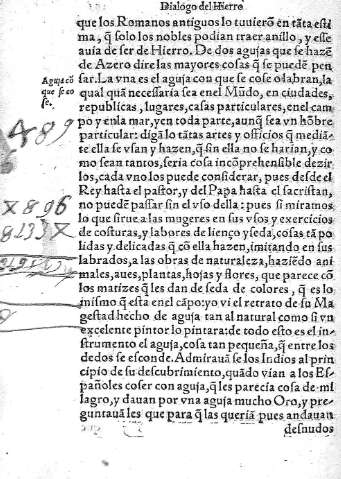 Dialogo del Hierro
que los Romanos antiguos lo tuvierõ en tãta esti
ma, q̃ solo los nobles podian traer anillo, y esse
auia de ser de Hierro. De dos agujas que se hazẽ
de Azero dire las mayores cosas q̃ se puedẽ pen
Aguja cõ
que se co
se.
sar. La vna es el aguja con que se cose o labran, la
qual quã necessaria sea enel Mũdo, en ciudades,
republicas, lugares, casas particulares, enel cam
po y enla mar, y en toda parte, aunq̃ sea vn hõbre
particular: digã lo tãtas artes y officios q̃ mediã-
te ella se vsan y hazen, q̃ sin ella no se harian, y co
mo sean tantos, seria cosa incõprehensible dezir
los, cada vno los puede considerar, pues desde el
Rey hasta el pastor, y del Papa hasta el sacristan,
no puedẽ passar sin el vso della: pues si miramos
lo que sirue a las mugeres en sus vsos y exercicios
de costuras, y labores de lienço y seda, cosas tã po
lidas y delicadas q̃ cõ ella hazen, imitando en sus
labrados, a las obras de naturaleza, haziẽdo ani
males, aues, plantas, hojas y flores, que parece cõ
los matizes q̃ les dan de seda de colores, q̃ es lo
mismo q̃ esta enel cãpo: yo vi el retrato de su Ma
gestad hecho de aguja tan al natural como si vn
excelente pintor lo pintara: de todo esto es el in-
strumento el aguja, cosa tan pequeña, q̃ entre los
dedos se esconde. Admirauã se los Indios al prin
cipio de su descubrimiento, quãdo vian a los Es-
pañoles coser con aguja, q̃ les parecia cosa de mi
lagro, y dauan por vna aguja mucho Oro, y pre-
guntauã les que para q̃ las queriã pues andauan
desnudos
489
X896
8133X